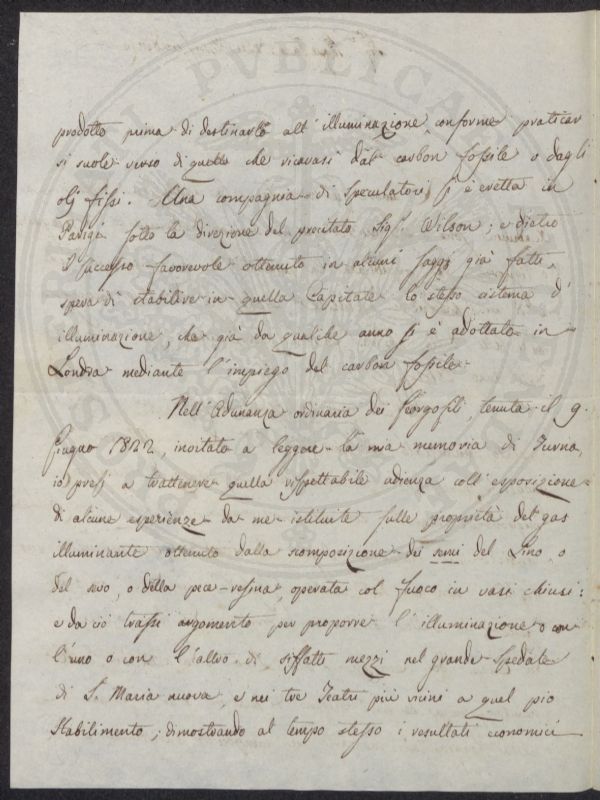 prodotto prima di destinarlo all' illuminazione, conforme praticar
si suole verso di quello che ricavasi dal carbon fossile o dagli
olj fissi. Una compagnia di speculatori si è eretta in
Parigi sotto la direzione del precitato Sig.r Wilson; e dietro
il successo favorevole ottenuto in alcuni saggi già fatti,
spera di stabilire in quella Capitale lo stesso sistema d'
illuminazione, che già da qualche anno si è adottato in
Londra mediante l'impiego del carbon fossile.
Nell' Adunanza ordinaria dei Georgofili, tenuta il 9.
Giugno 1822, invitato a leggere la mia memoria di Turno,
io presi a trattenere quella rispettabile udienza coll' esposizione
di alcune esperienze da me istituite sulle proprietà del gas
illuminante ottenuto dalla scomposizione dei semi del Lino, o
del sevo, o della pece-resina, operata col fuoco in vasi chiusi:
e da ciò trassi argomento per proporre l' illuminazione o con
l'uno o con l'altro di siffatti mezzi nel grande Spedale
di S. Maria nuova, e nei tre Teatri più vicini a quel pio
Stabilimento; dimostrando al tempo stesso i resultati economici
PVBLICA